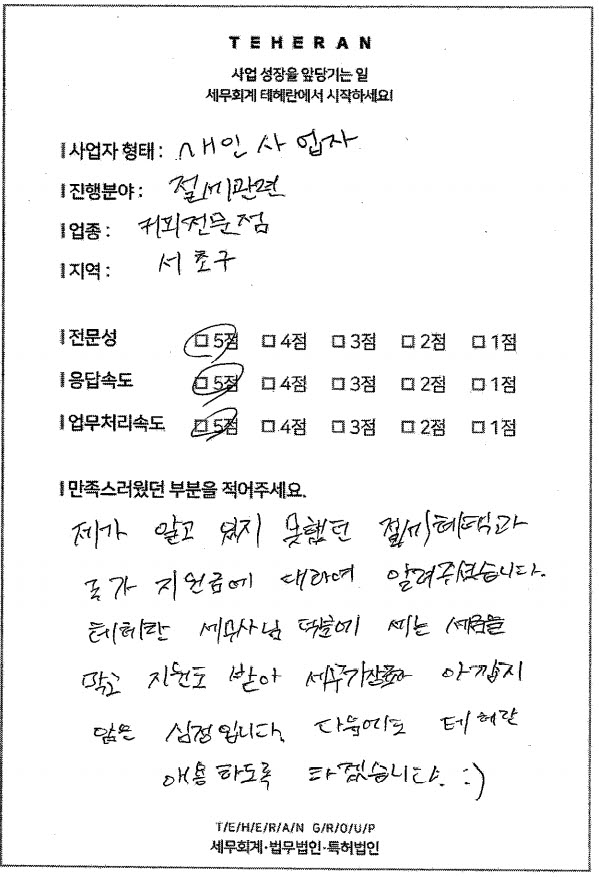 TEHERAN
사업 성장을 앞당기는 일
세무회계 테헤란에서 시작하세요!
사업자 형태 : 개인사업자
진행분야 : 절세관련
업종 : 커피전문점
지역 : 서초구
전문성 □ 5점 □ 4점 □ 3점 □ 2점 □ 1점
응답속도 □ 5점 □ 4점 □ 3점 □ 2점 □ 1점
업무처리속도 □ 5점 □ 4점 □ 3점 □ 2점 □ 1점
만족스러웠던 부분을 적어주세요.
제가 알고 있지 못했던 절세혜택과
국가 지원금에 대하여 알려주셨습니다.
테헤란 세무사님 덕분에 세는 세금을
막고 지원도 받아 아깝지
않은 심정입니다. 다음에도 테헤란
애용하도록 하겠습니다. :)
T/E/H/E/R/A/N G/R/O/U/P
세무회계·법무법인·특허법인